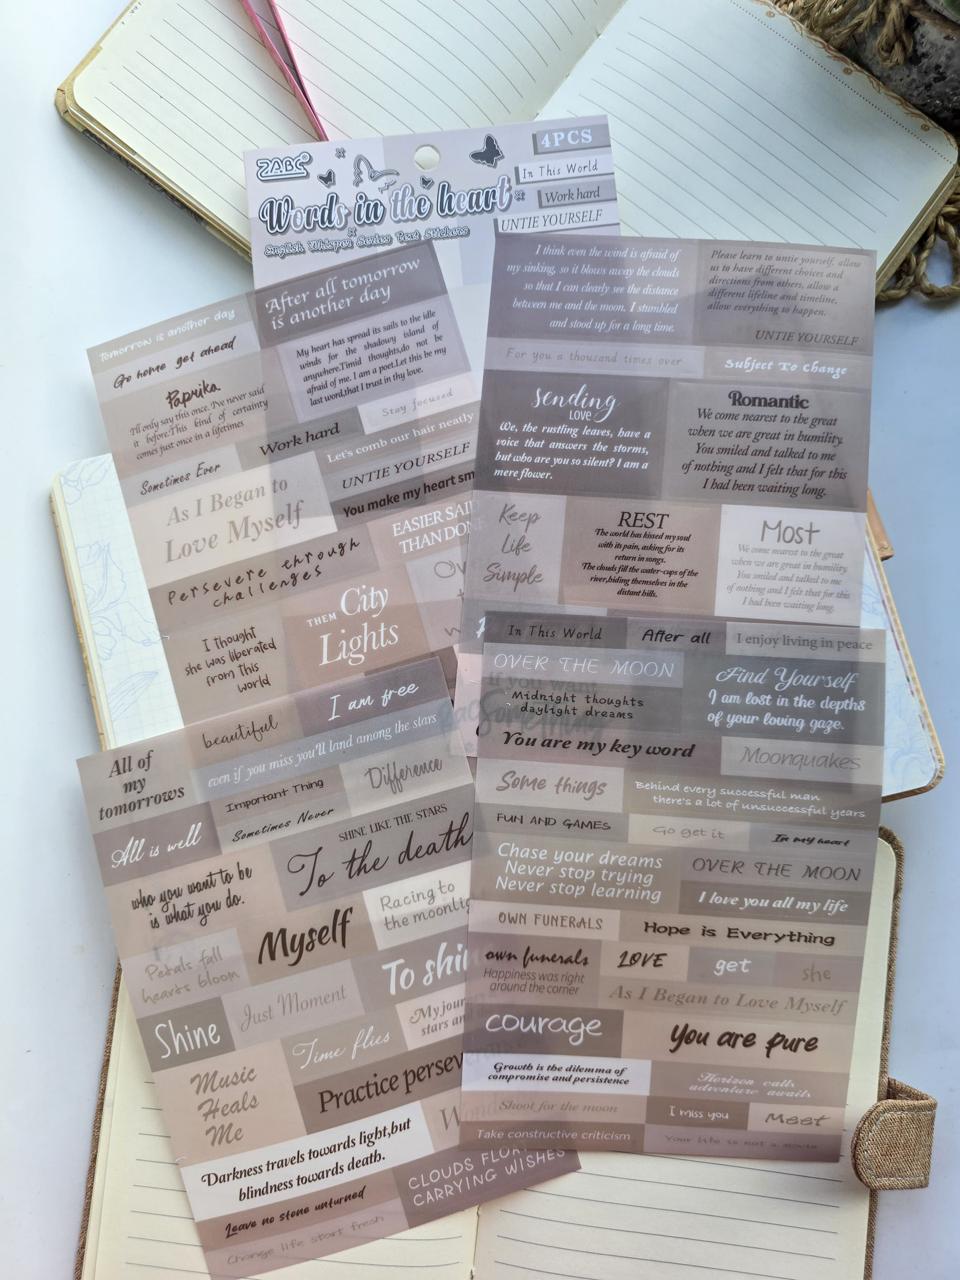 ZABC
Words in the heart
English Whisper Series Text Stickers
4PCS
In This World
Work hard
UNTIE YOURSELF
Tomorrow is another day
After all tomorrow
is another day
Go home get ahead
My heart has spread its sails to the idle
winds for the shadowy island of
anywhere.Timid thoughts,do not be
afraid of me. I am a poet.Let this be my
last word,that I trust in thy love.
Paprika
I'll only say this once. I've never said
it before.This kind of certainty
comes just once in a lifetimes
Stay focused
Work hard
Let's comb our hair neatly
Sometimes Ever
UNTIE YOURSELF
As I Began to
Love Myself
You make my heart sm
EASIER SAID
THAN DONE
Persevere through
challenges
THEM City
Lights
I thought
she was liberated
from this
world
I think even the wind is afraid of
my sinking, so it blows away the clouds
so that I can clearly see the distance
between me and the moon. I stumbled
and stood up for a long time.
Please learn to untie yourself, allow
us to have different choices and
directions from others, allow a
different lifeline and timeline,
allow everything to happen.
UNTIE YOURSELF
For you a thousand times over
Subject To Change
sending
LOVE
We, the rustling leaves, have a
voice that answers the storms,
but who are you so silent? I am a
mere flower.
Romantic
We come nearest to the great
when we are great in humility.
You smiled and talked to me
of nothing and I felt that for this
I had been waiting long.
Keep
Life
Simple
REST
The world has kissed my soul
with its pain, asking for its
return in songs.
The clouds fill the water-cups of the
river,hiding themselves in the
distant hills.
Most
We come nearest to the great
when we are great in humility.
You smiled and talked to me
of nothing and I felt that for this
I had been waiting long.
In This World
After all
I enjoy living in peace
All of
my
tomorrows
beautiful
I am free
even if you miss you'll land among the stars
Important Thing
Difference
Sometimes Never
All is well
SHINE LIKE THE STARS
To the death
who you want to be
is what you do.
Myself
Racing to
the moonlig
Petals fall
hearts bloom
To shin
Just Moment
Shine
My jour
stars an
Time flies
Music
Heals
Me
Practice persever
Darkness travels towards light,but
blindness towards death.
CLOUDS FLO
CARRYING WISHES
Leave no stone unturned
Change life start fresh
OVER THE MOON
Midnight thoughts
daylight dreams
Find Yourself
I am lost in the depths
of your loving gaze.
You are my key word
Moonquakes
Some things
Behind every successful man
there's a lot of unsuccessful years
FUN AND GAMES
Go get it
In my heart
Chase your dreams
Never stop trying
Never stop learning
OVER THE MOON
I love you all my life
OWN FUNERALS
Hope is Everything
own funerals
Happiness was right
around the corner
LOVE
get
she
As I Began to Love Myself
courage
You are pure
Growth is the dilemma of
compromise and persistence
Horizon calls
adventure awaits
Shoot for the moon
I miss you
Meet
Take constructive criticism
Your life is not a movie